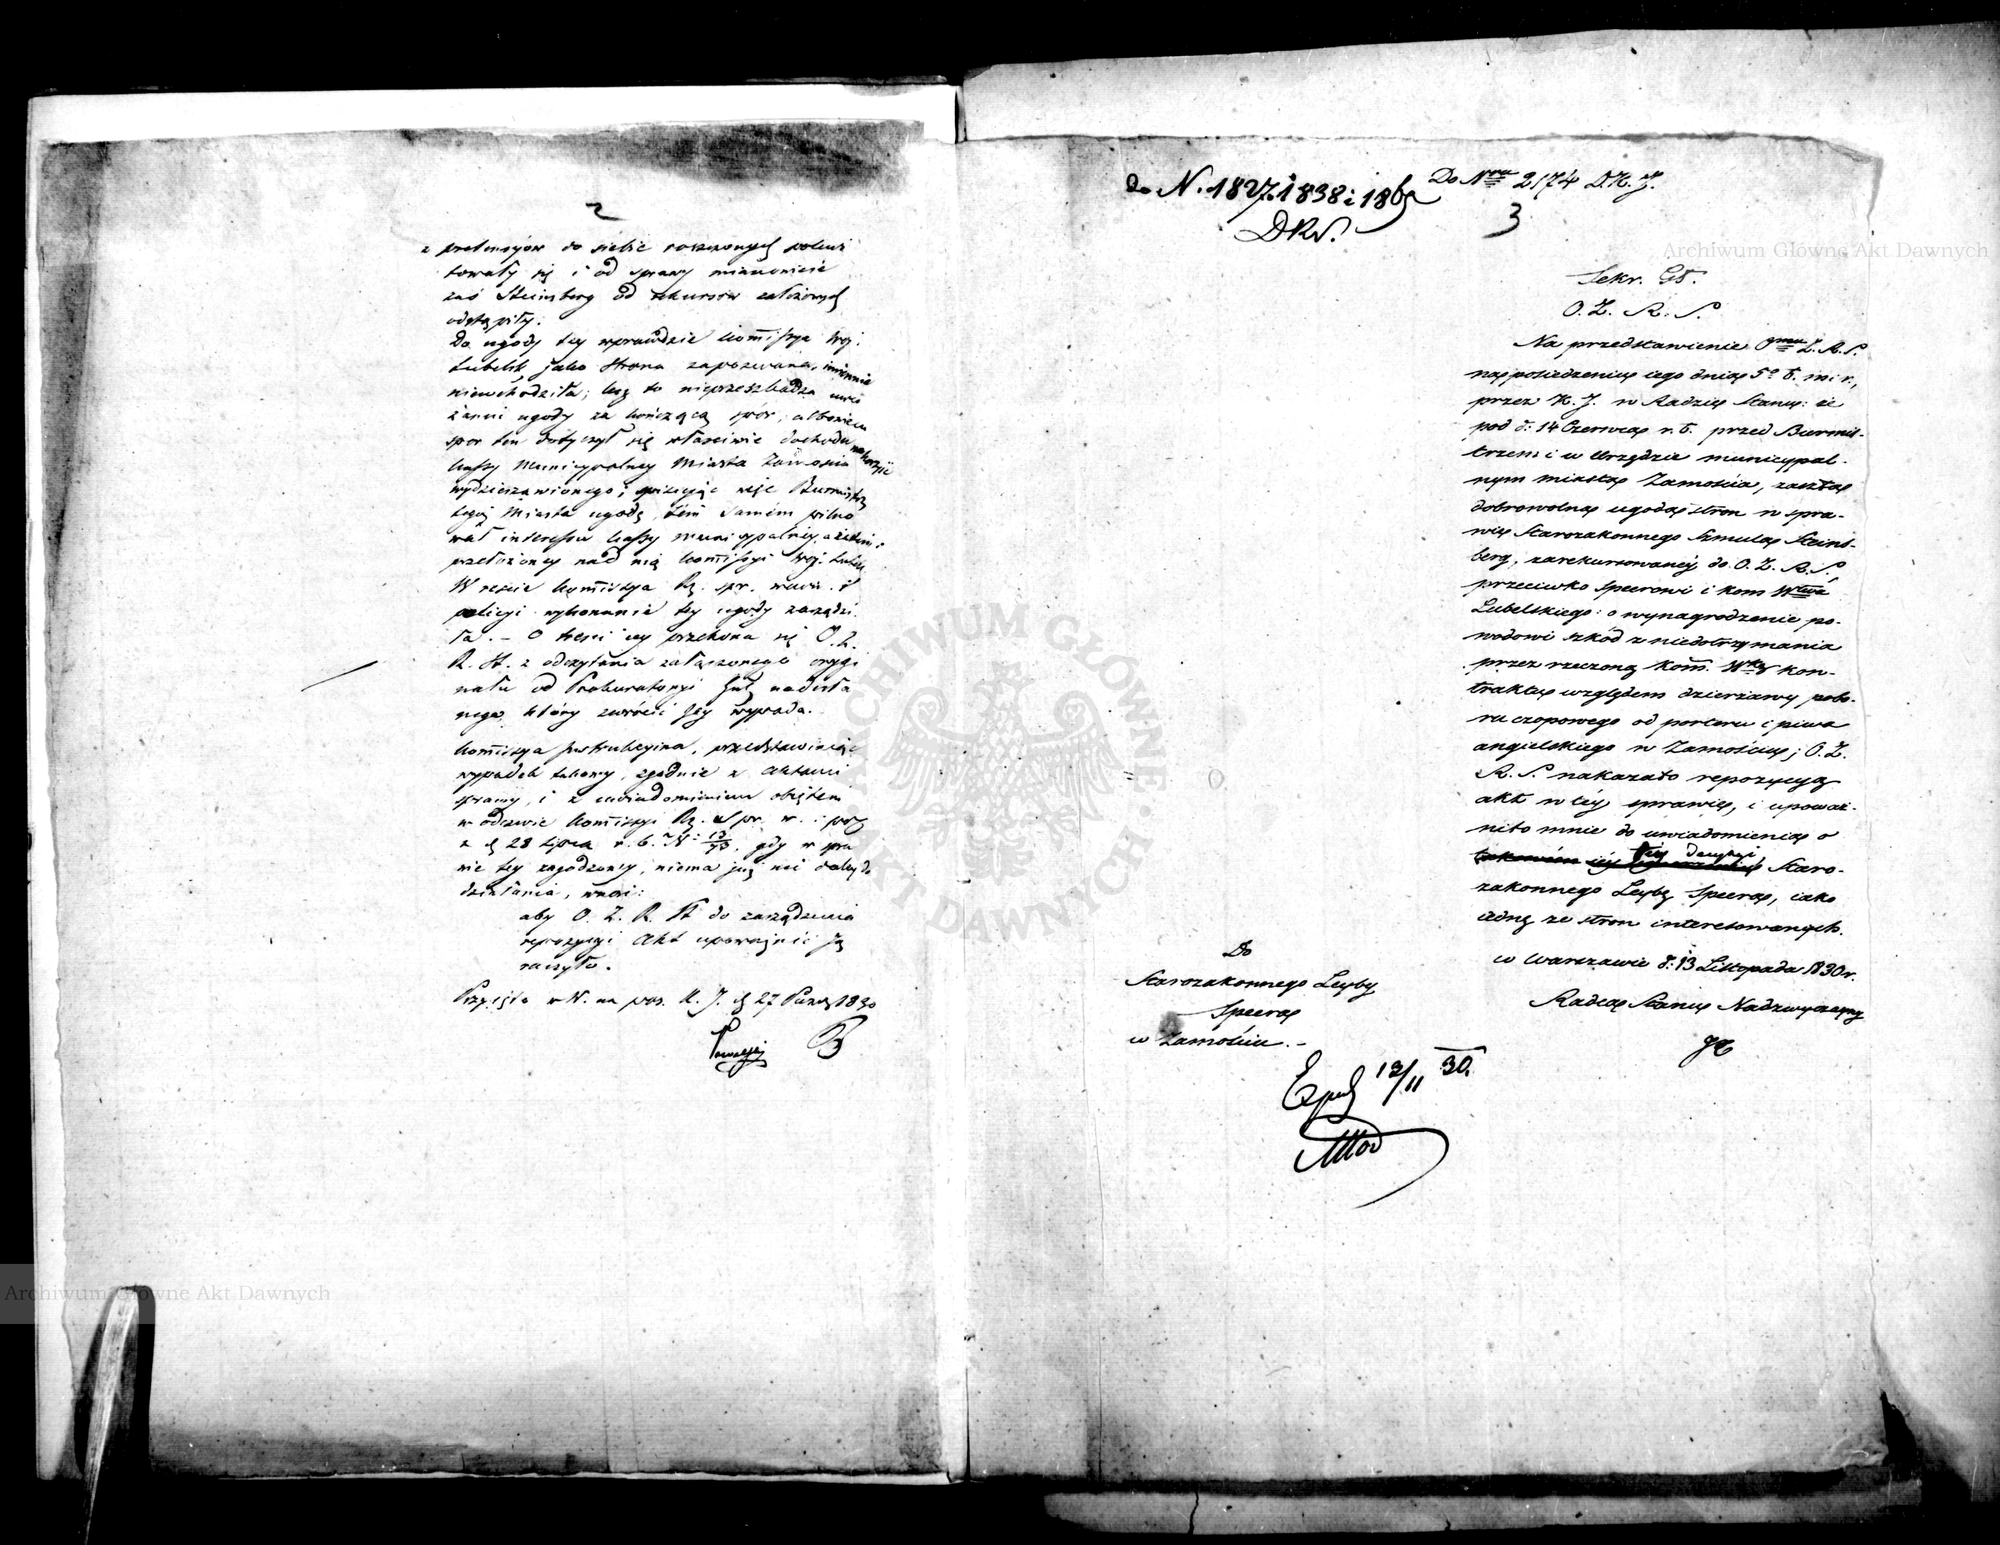 2
z pretensyów do siebie roszczonych pokwi
towały się i od sprawy mianowicie
zaś Steinsberg od rekursów założonych
odstąpiły.
Do ugody tey wprawdzie Kommissya Woj:
Lubelsk. jako strona zapozwana, imiennie
niewchodziła; lecz to nieprzeszkadza uwa
żaniu ugody za kończącą spór, albowiem
spor ten dotyczył się właściwie dochodu na korzyść
kassy Municypalney Miasta Zamościa
wydzierżawionego; więc Burmistrz
tegoż Miasta ugodę, tem samem pilno
wał interessu kassy municypalney, a zatem i
przełożoney nad nią Kommissyi Woj. Lubel.
W reszcie Kommissya Rz. spr. wewn. i
policyi wykonanie tey ugody zarządzi
ła. – O treści iey przekona się O. Z.
R. St. z odczytania załączonego orygi
nału od Prokuratoryi Jnlney nadesła
nego, który zwrócić jey wypada.
Kommissya Jnstrukcyina, przedstawiaiąc
wypadek takowy, zgodnie z aktami
sprawy, i z uwiadomieniem objętem
w odezwie Kommissyi Rz. Spr. w. i pol
z d 28 Lipca r. b. N: 13/73, gdy w spra
wie tey zagodzoney, niema już nic dalszego do
działania, wnosi:
aby O. Z. R. St do zarządzenia
repozycyi Akt upoważnić Ją
raczyło.
Przyjęta w W. na pos. K. J. d 27 Paźdz 1830
do N. 1827. 1838 i 186
DKW.
Do Nru 2174 D.K.J.
3
Sekr. Gł.
O. Z. R. S.
Na przedstawienie Ogmu Z. R. S.
na posiedzeniu iego dnia 5º b. m. i r.,
przez K. J. w Radzie Stanu: że
pod d: 14 Czerwca r. b. przed Burmis-
trzem i w Urzędzie municypal-
nym miasta Zamościa, zaszła
dobrowolna ugoda stron w spra-
wie Starozakonnego Szmula Steins-
berg, zarekursowanéy do O. Z. R. S.
przeciwko Speerowi i kom Wdwa
Lubelskiego: o wynagrodzenie po-
wodowi szkód z niedotrzymania
przez rzeczoną Kom. Wką kon-
traktu względem dzierżawy pobo-
ru czopowego od porteru i piwa
angielskiego w Zamościu; O. Z.
R. S. nakazało repozycyą
akt w téy sprawie, i upoważ-
niło mnie do uwiadomienia o
téy decyzyi Staro-
zakonnego Leyby Speera, iako
iedną ze stron interesowanych.
w Warszawie d: 13 Listopada 1830 r.
Radca Stanu Nadzwyczayny
Do
Starozakonnego Leyby
Speera
w Zamościu. –
Exped 13/11 30.
Archiwum Główne Akt Dawnych
Archiwum Główne Akt Dawnych
ARCHIWUM GŁÓWNE AKT DAWNYCH